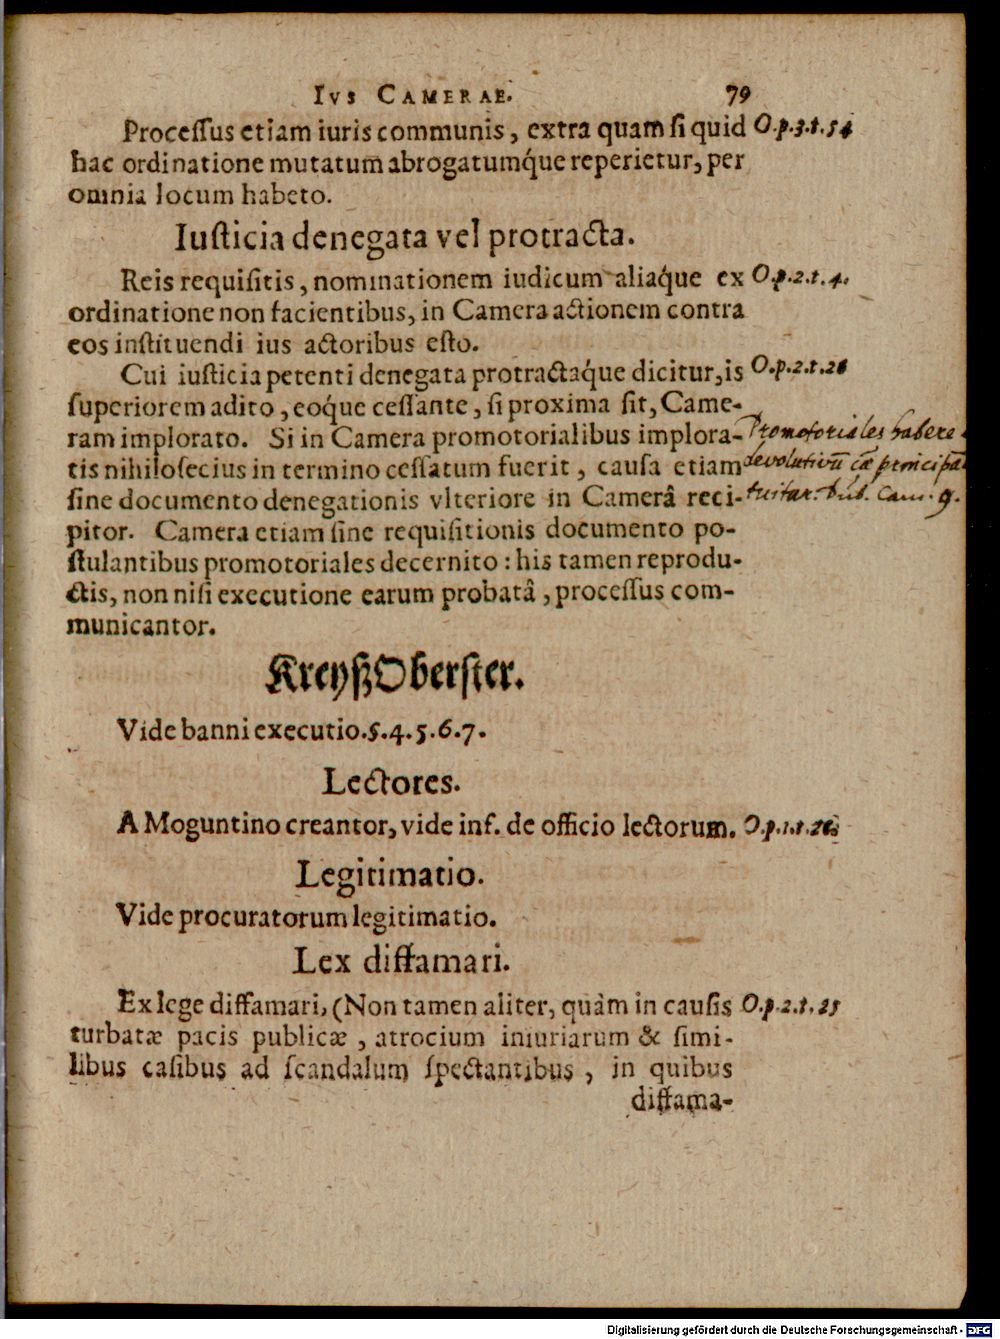 IVS CAMERAE. 79
Processus etiam iuris communis, extra quam si quid O.p.3.t.54
hac ordinatione mutatum abrogatumq́ue reperietur, per
omnia locum habeto.
Iusticia denegata vel protracta.
Reis requisitis, nominationem iudicum aliaq́ue ex O.p.2.t.4.
ordinatione non facientibus, in Camera actionem contra
eos instituendi ius actoribus esto.
Cui iusticia petenti denegata protractaq́ue dicitur, is O.p.2.t.26
superiorem adito, eoq́ue cessante, si proxima sit, Came-
ram implorato. Si in Camera promotorialibus implora- Promotoriales habere
tis nihilosecius in termino cessatum fuerit, causa etiam devolutivũ
sine documento denegationis vlteriore in Camerâ reci- Cam. 9.
pitor. Camera etiam sine requisitionis documento po-
stulantibus promotoriales decernito: his tamen reprodu-
ctis, non nisi executione earum probatâ, processus com-
municantor.
KreyßOberster.
Vide banni executio. §. 4. 5. 6. 7.
Lectores.
A Moguntino creantor, vide inf. de officio lectorum. O.p.1.t.26
Legitimatio.
Vide procuratorum legitimatio.
Lex diffamari.
Ex lege diffamari, (Non tamen aliter, quàm in causis O.p.2.t.25
turbatæ pacis publicæ, atrocium iniuriarum & simi-
libus casibus ad scandalum spectantibus, in quibus
diffama-
Digitalisierung gefördert durch die Deutsche Forschungsgemeinschaft - DFG